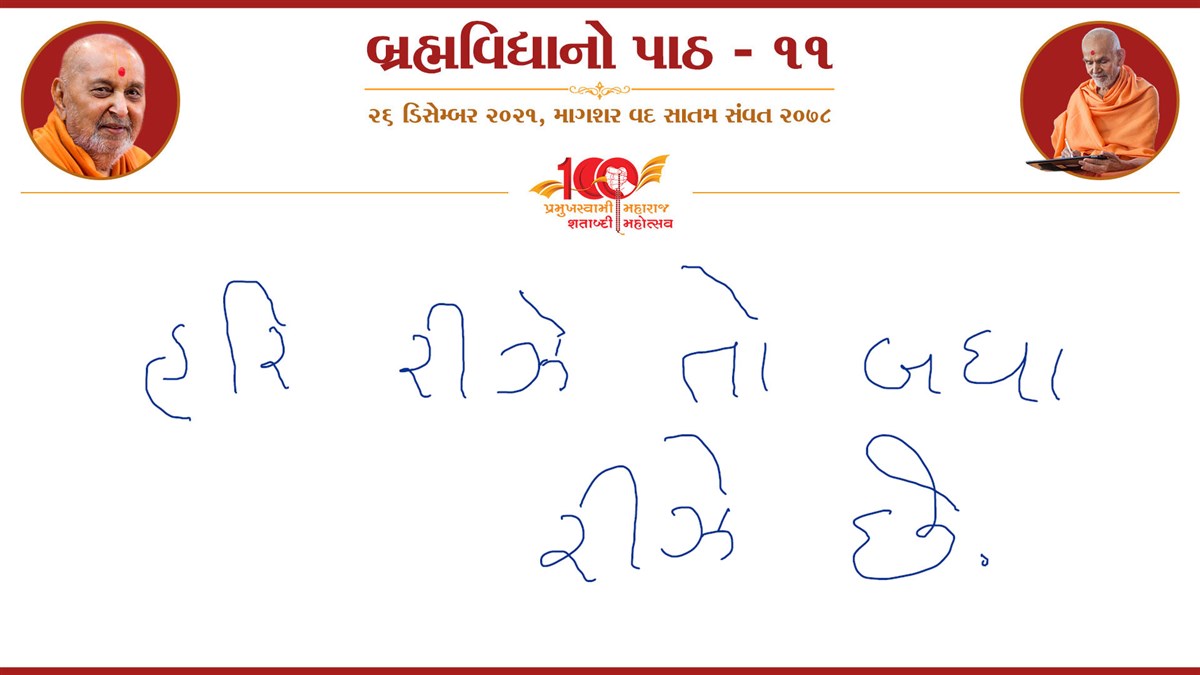 બ્રહ્મવિદ્યાનો પાઠ - ૧૧
૨૬ ડિસેમ્બર ૨૦૨૧, માગશર વદ સાતમ સંવત ૨૦૭૮
100
પ્રમુખસ્વામી મહારાજ
શતાબ્દી મહોત્સવ
હરિ રીઝે તો બધા
રીઝે છે.